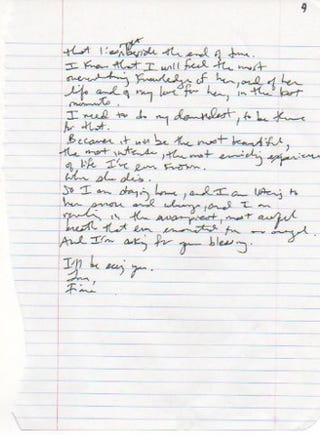 9
that I the end of time.
I know that I will feel the most
overwhelming knowledge of her, and of her
life and of my love for her, in the last
moments.
I need to do my damnedest, to be there
for that.
Because it will be the most beautiful,
the most intense, the most enriching experience
of life I've ever known.
When she dies.
So I am staying home, and I am listening to
her snore and wheeze, and I am
revelling in the swampiest, most awful
breath that ever emanated from an angel.
And I'm asking for your blessing.
I'll be seeing you.
Love,
Fiona